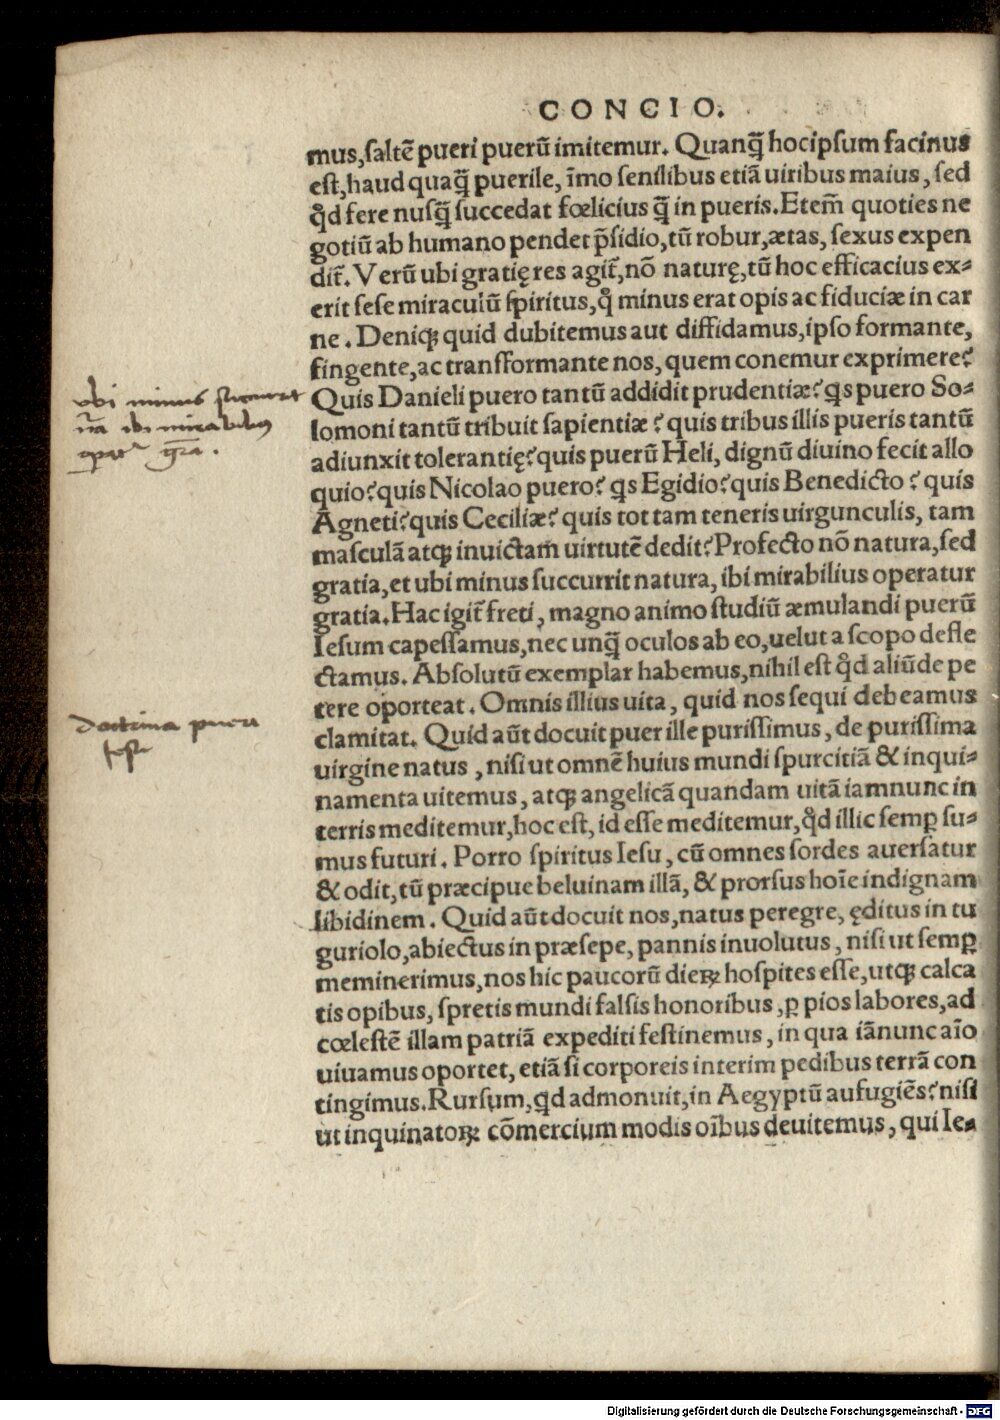 CONCIO.
mus,saltē pueri puerū imitemur. Quanq̄ hocipsum facinus
est,haud quaq̄ puerile, īmo senilibus etiā uiribus maius, sed
qd̓ fere nusq̄ succedat fœlicius q̄ in pueris.Etem̄ quoties ne
gotiū ab humano pendet p̄sidio,tū robur,ætas, sexus expen
dit̄. Verū ubi gratię res agit̄,nō naturę,tū hoc efficacius ex⸗
erit sese miraculū spiritus,q̊ minus erat opis ac fiduciæ in car
ne. Deniqꝫ quid dubitemus aut diffidamus,ipso formante,
fingente,ac transformante nos, quem conemur exprimere?
Quis Danieli puero tantū addidit prudentiæ? qs puero So⸗
lomoni tantū tribuit sapientiæ? quis tribus illis pueris tantū
adiunxit tolerantię? quis puerū Heli, dignū diuino fecit allo
quio? quis Nicolao puero? qs Egidio? quis Benedicto? quis
Agneti? quis Ceciliæ? quis tot tam teneris uirgunculis, tam
masculā atqꝫ inuictam uirtutē dedit? Profecto nō natura,sed
gratia,et ubi minus succurrit natura, ibi mirabilius operatur
gratia. Hac igit̄ freti, magno animo studiū æmulandi puerū
Iesum capessamus, nec unq̄ oculos ab eo,uelut a scopo defle
ctamus. Absolutū exemplar habemus,nihil est qd̓ aliūde pe
tere oporteat. Omnis illius uita, quid nos sequi debeamus
clamitat. Quid aūt docuit puer ille purissimus, de purissima
uirgine natus, nisi ut omnē huius mundi spurcitiā & inqui⸗
namenta uitemus, atqꝫ angelicā quandam uitā iamnunc in
terris meditemur,hoc est, id esse meditemur,qd̓ illic semꝑ su⸗
mus futuri. Porro spiritus Iesu, cū omnes sordes auersatur
& odit,tū præcipue beluinam illā, & prorsus hoīe indignam
libidinem. Quid aūt docuit nos,natus peregre, ęditus in tu
guriolo,abiectus in præsepe, pannis inuolutus, nisi ut semꝑ
meminerimus,nos hic paucorū dieꝝ hospites esse,utqꝫ calca
tis opibus, spretis mundi falsis honoribus, ꝑ pios labores,ad
cœlestē illam patriā expediti festinemus, in qua iānunc aīo
uiuamus oportet, etiā si corporeis interim pedibus terrā con
tingimus. Rursum,qd admonuit,in Aegyptū aufugiēs? nisi
ut inquinatoꝝ cōmercium modis oībus deuitemus, qui Ie⸗
ubi minus succurrit
na ibi mirabilius
operatr gra.
doctrina pueri
Digitalisierung gefördert durch die Deutsche Forschungsgemeinschaft - DFG